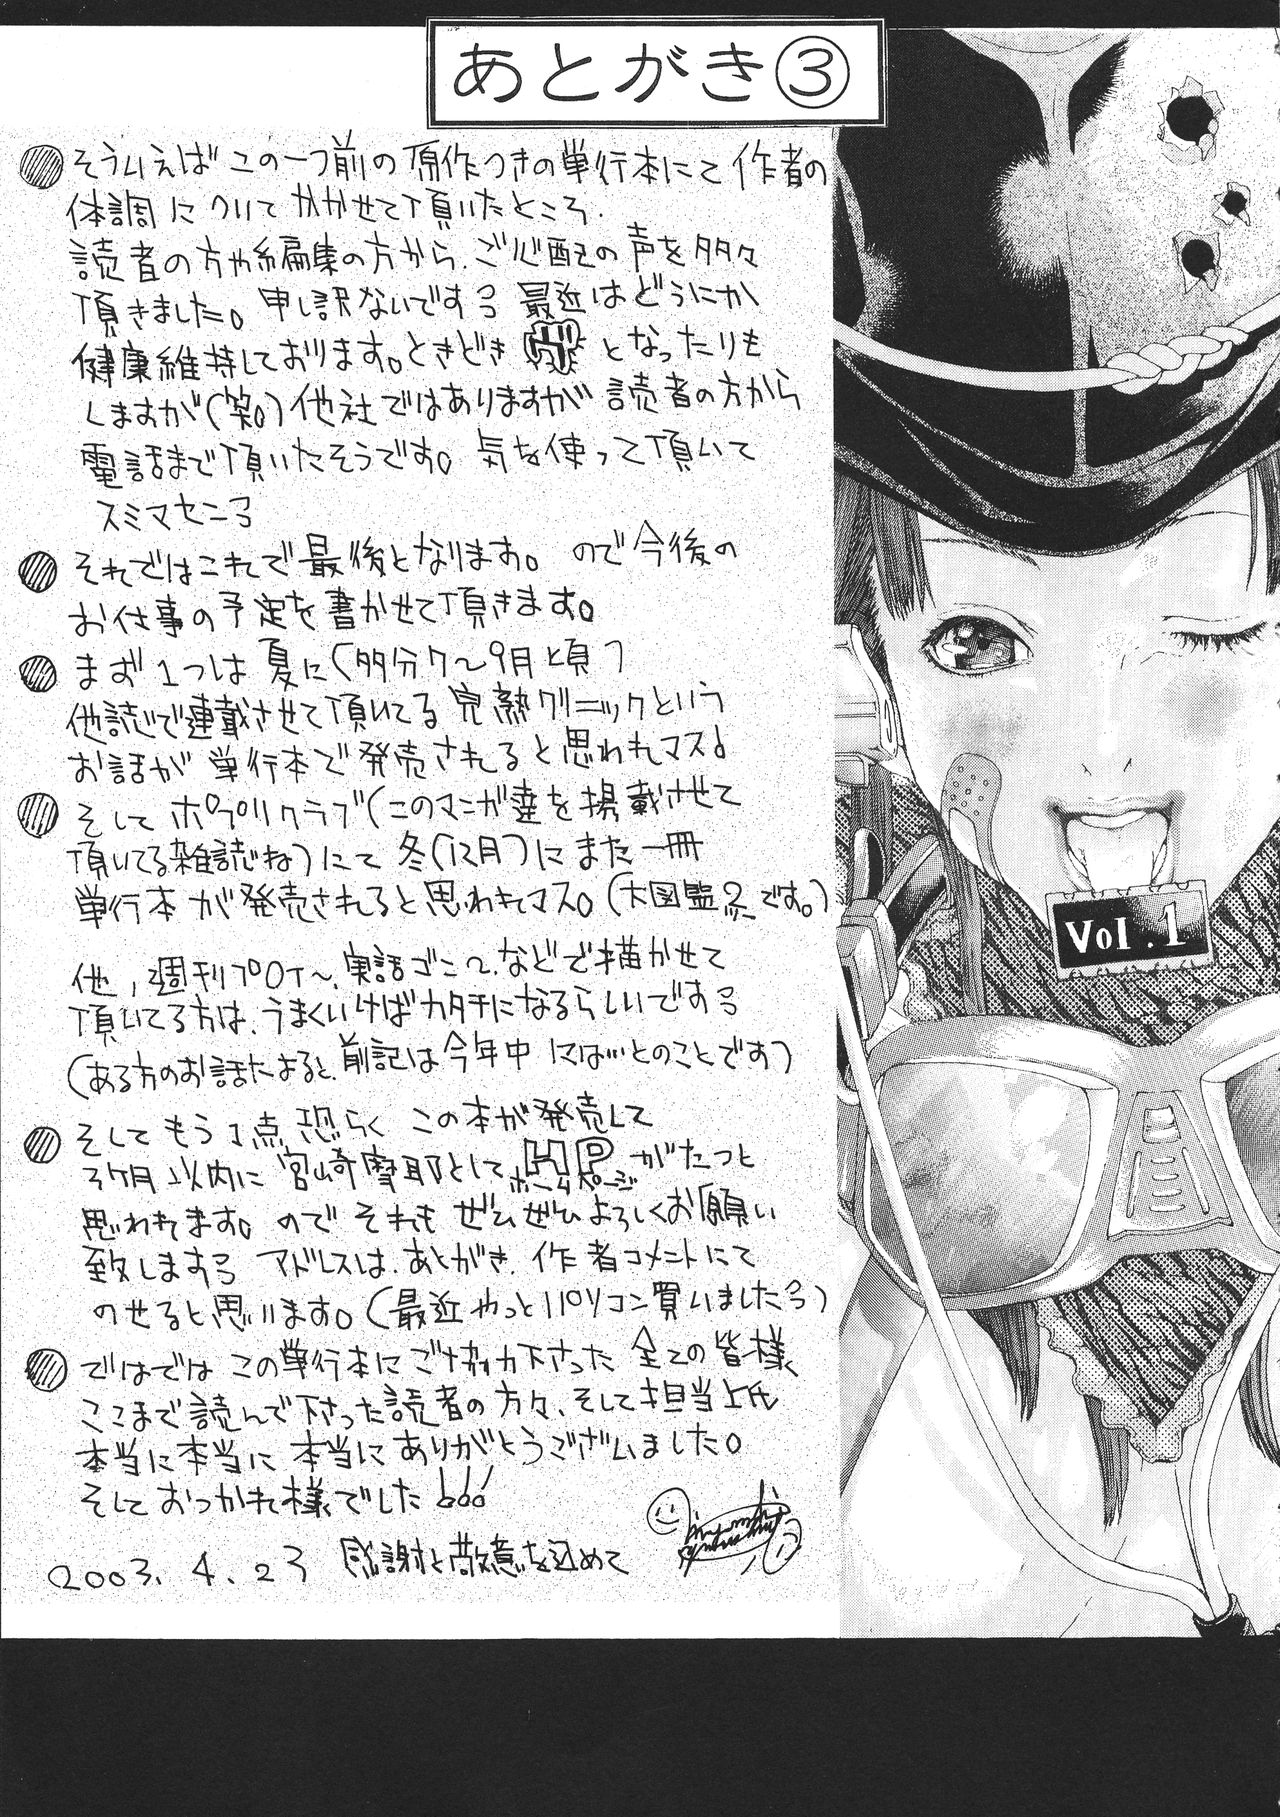 あとがき③
そういえばこの一つ前の原作つきの単行本にて作者の
体調についてかかせて頂いたところ、
読者の方や編集の方から、ご心配の声を多々
頂きました。申し訳ないですっ 最近はどうにか
健康維持しております。ときどき となったりも
しますが(笑。)他社ではありますが読者の方から
電話まで頂いたそうです。気を使って頂いて
スミマセンっ
それではこれで最後となります。ので今後の
お仕事の予定を書かせて頂きます。
まず1つは夏に(多分7〜9月頃)
他誌で連載させて頂いてる完熟クリニックという
お話が単行本で発売されると思われマス!
そしてポプリクラブ(このマンガ達を掲載させて
頂いてる雑誌ね)にて冬(12月)にまた一冊
単行本が発売されると思われマス。(大図鑑2です。)
他、週刊プロイ〜、実話ゴン2、などで描かせて
頂いてる方は、うまくいけばカタチになるらしいですっ
(ある方のお話によると、前記は今年中にはいとのことです)
そしてもう1点、恐らくこの本が発売して
3ヶ月以内に宮崎摩耶としてHPがたつと
ホームページ
思われます。のでそれもぜひぜひよろしくお願い
致しますっ アドレスは、あとがき、作者コメントにて
のせると思います。(最近やっとパソコン買いましたっ)
ではではこの単行本にご協力下さった全ての皆様、
ここまで読んで下さった読者の方々、そして担当上氏
本当に本当に本当にありがとうございました。
そしておつかれ様でした!!!
2003.4.23 感謝と敬意を込めて
Vol.1